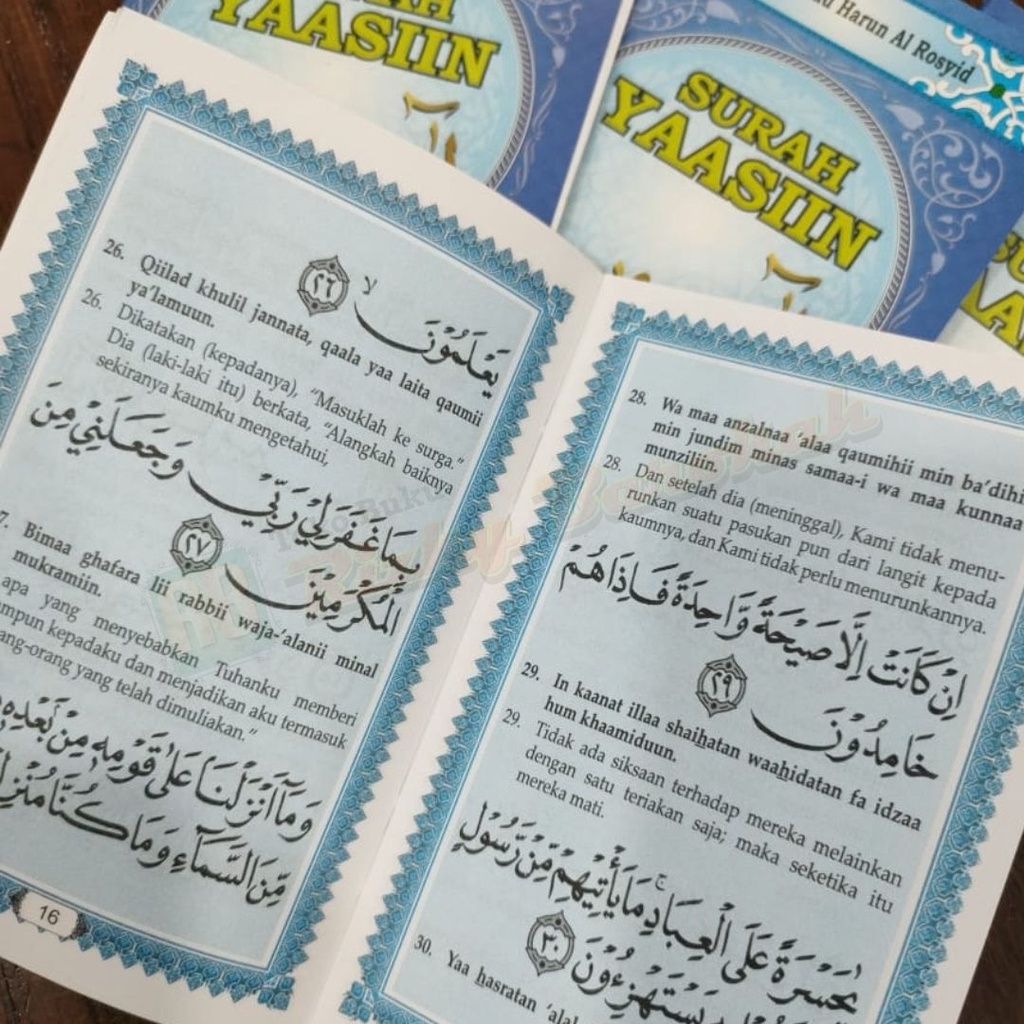 SURAH
YAASIIN
Harun Al Rosyid
SURAH
YAASIIN
يَعْلَمُوْنَۙ ﴿٢٦﴾
26. Qiilad khulil jannata, qaala yaa laita qaumii
ya'lamuun.
26. Dikatakan (kepadanya), "Masuklah ke surga."
Dia (laki-laki itu) berkata, "Alangkah baiknya
sekiranya kaumku mengetahui,
بِمَا غَفَرَ لِيْ رَبِّيْ وَجَعَلَنِيْ مِنَ
الْمُكْرَمِيْنَ ﴿٢٧﴾
7. Bimaa ghafara lii rabbii waja-'alanii minal
mukramiin.
apa yang menyebabkan Tuhanku memberi
ampun kepadaku dan menjadikan aku termasuk
ang-orang yang telah dimuliakan."
وَمَآ اَنْزَلْنَا عَلٰى قَوْمِهٖ مِنْۢ بَعْدِهٖ
مِّنَ السَّمَآءِ وَمَا كُنَّا
16
28. Wa maa anzalnaa 'alaa qaumihii min ba'dihi
min jundim minas samaa-i wa maa kunnaa
munziliin.
28. Dan setelah dia (meninggal), Kami tidak menu-
runkan suatu pasukan pun dari langit kepada
kaumnya, dan Kami tidak perlu menurunkannya.
اِنْ كَانَتْ اِلَّا صَيْحَةً وَّاحِدَةً فَاِذَا هُمْ
خَامِدُوْنَ ﴿٢٩﴾
29. In kaanat illaa shaihatan waahidatan fa idzaa
hum khaamiduun.
29. Tidak ada siksaan terhadap mereka melainkan
dengan satu teriakan saja; maka seketika itu
mereka mati.
يٰحَسْرَةً عَلَى الْعِبَادِۚ مَا يَأْتِيْهِمْ مِّنْ رَّسُوْلٍ
يَسْتَهْزِءُوْنَ ﴿٣٠﴾
30. Yaa hasratan 'alal